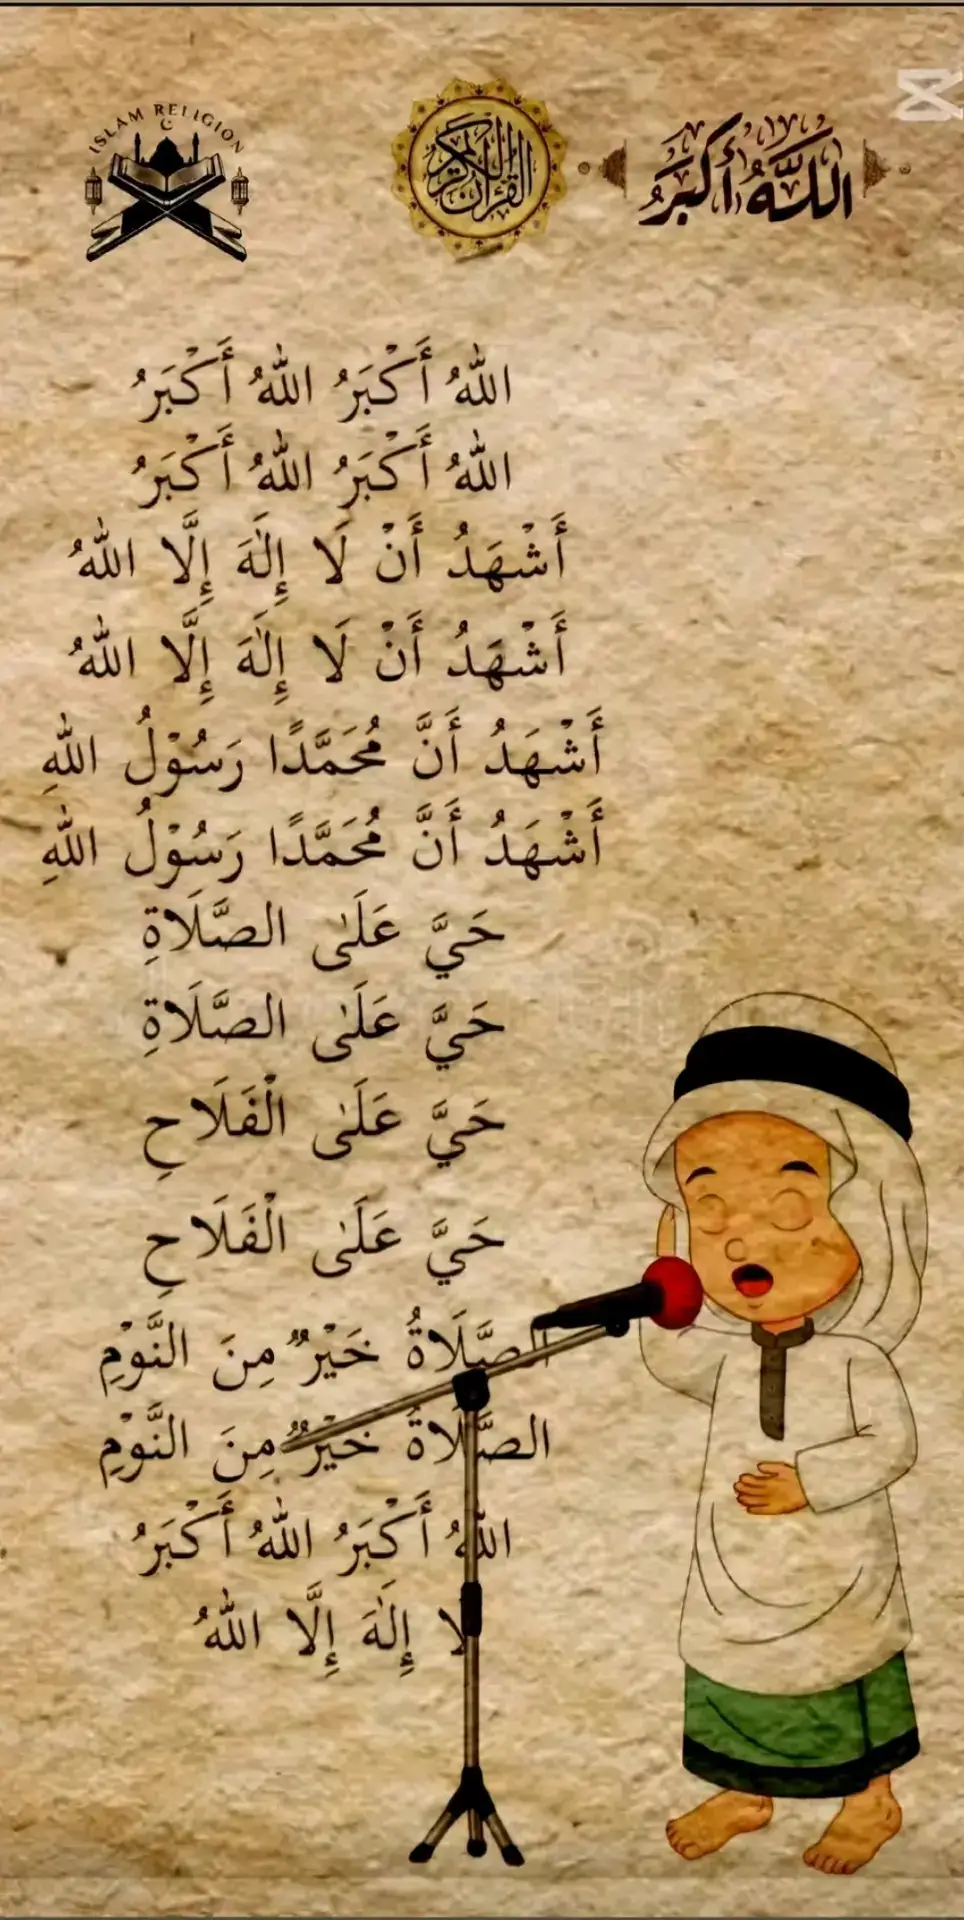 ISLAM RELIGION
القرآن الكريم
الله أكبر
اللهُ أَكْبَرُ اللهُ أَكْبَرُ
اللهُ أَكْبَرُ اللهُ أَكْبَرُ
أَشْهَدُ أَنْ لَا إِلٰهَ إِلَّا اللهُ
أَشْهَدُ أَنْ لَا إِلٰهَ إِلَّا اللهُ
أَشْهَدُ أَنَّ مُحَمَّدًا رَسُوْلُ اللهِ
أَشْهَدُ أَنَّ مُحَمَّدًا رَسُوْلُ اللهِ
حَيَّ عَلَى الصَّلَاةِ
حَيَّ عَلَى الصَّلَاةِ
حَيَّ عَلَى الْفَلَاحِ
حَيَّ عَلَى الْفَلَاحِ
الصَّلَاةُ خَيْرٌ مِنَ النَّوْمِ
الصَّلَاةُ خَيْرٌ مِنَ النَّوْمِ
اللهُ أَكْبَرُ اللهُ أَكْبَرُ
لَا إِلٰهَ إِلَّا اللهُ